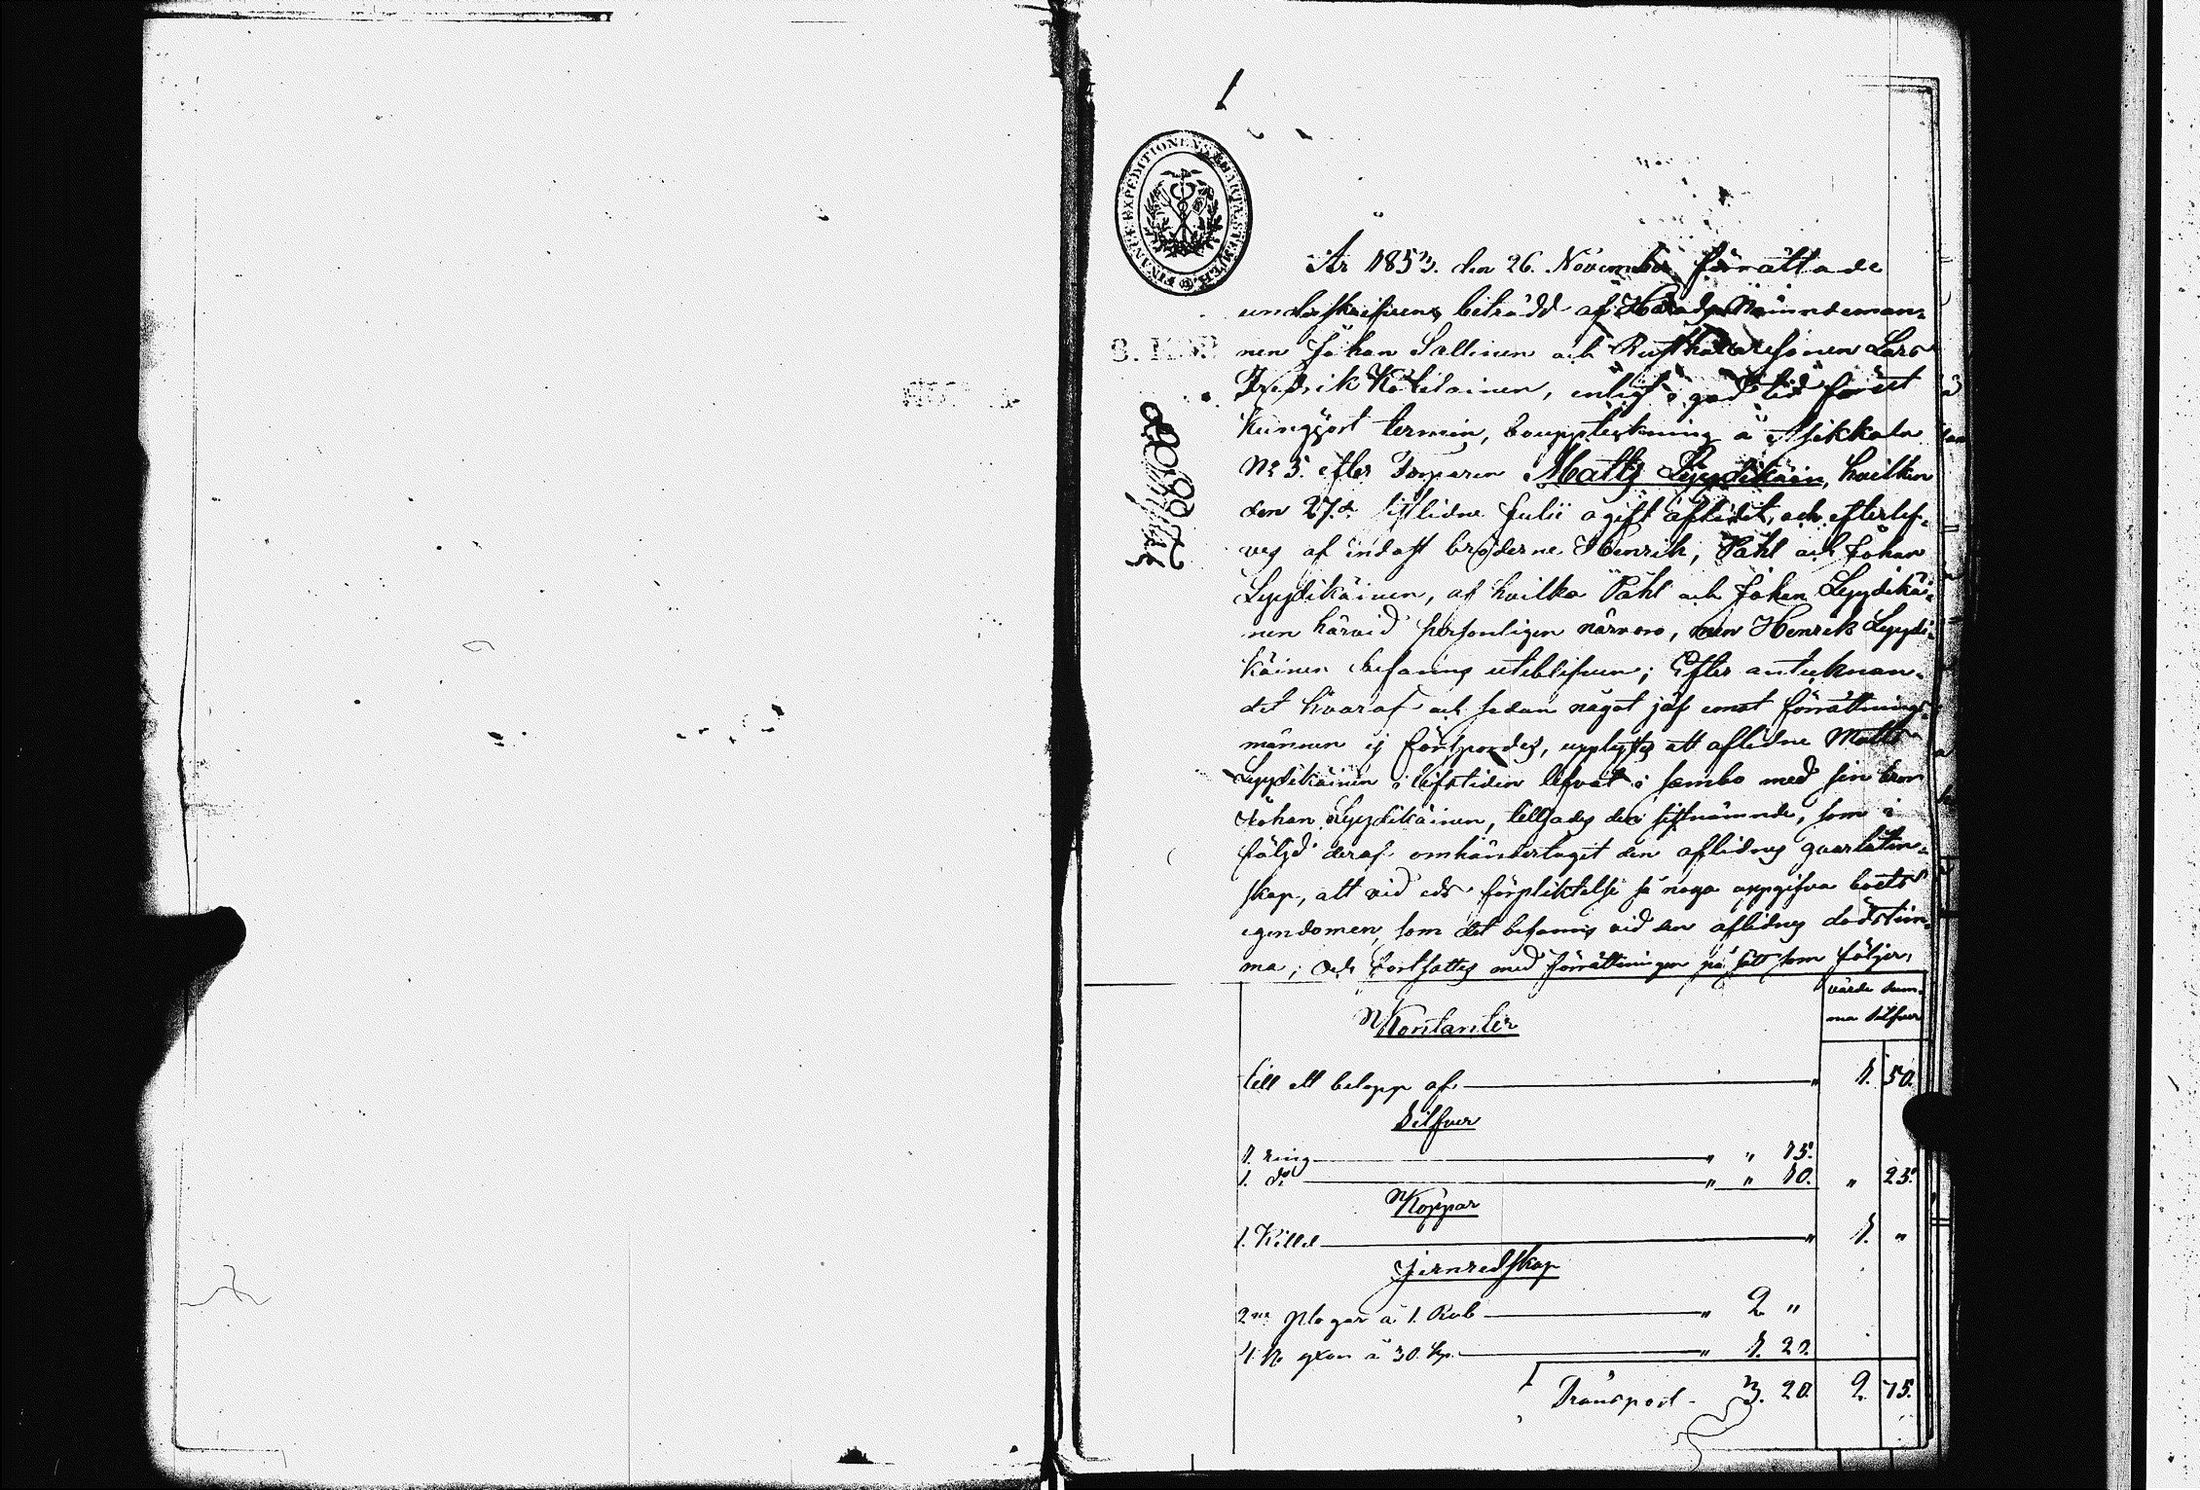 1
FINANCE EXPEDITIONENS CHARTÆ STEMPEL
År 1853. den 26. November förrättade
underskrifvens biträdd af Härads Nämndeman-
nen Johan Sallinen och Rusthållaresonen Lars
Fredrik Kotilainen, enligt i god tid förut
kungjort termin, bouppteckning å Asikkala
No 5. efter Torparen Matts Lyydikäin, hvilken
den 27.de sistlidne Julii ogift aflidit, och efterlef-
vés af endast bröderne Henrik, Påhl och Johan
Lyydikäinen, af hvilka Påhl och Johan Lyydikäi-
nen härvid personligen närvoro, men Henrik Lyydi-
käinen befanns uteblifven; Efter antecknan-
det hvaraf och sedan något jäf emot förrättnings-
männen ej förspordes, upplystes att aflidne Matts
Lyydikäinen i lifstiden lefvat i sambo med sin bror
Johan Lyydikäinen, tillsades den sistnämnde, som i
följd deraf omhändertaget den aflidnes qvarlåten-
skap, att vid eds förpliktelse så noga uppgifva boets
egendomen, som det befanns vid den aflidnes dödstim-
ma; och fortsattes med förrättningen på sätt som följer,
värde Sum-
ma Silfver
Kontanter
till ett belopp af " 1. 50.
Silfver
1. ring " " 15.
1. do " " 10. " 25.
Koppar
1. Kittel " 1. "
Jernredskap
2ne plogar à 1. Rub " 2 "
4. yxor à 30. kp. " 1. 20.
Transport - 3. 20. 2. 75.